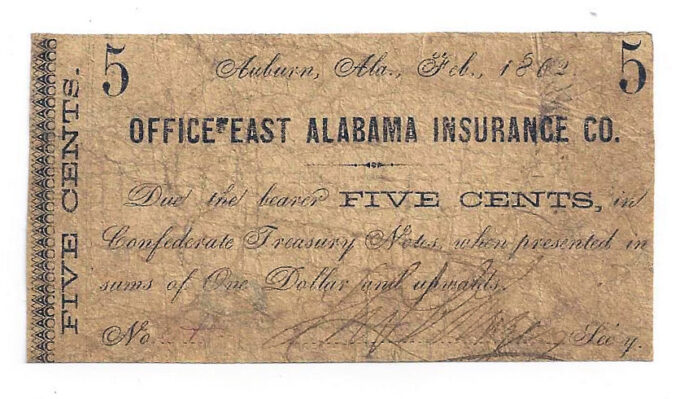 5 Auburn, Ala., Feb., 1862. 5
OFFICE EAST ALABAMA INSURANCE CO.
Due the bearer FIVE CENTS, in
Confederate Treasury Notes, when presented in
sums of One Dollar and upwards.
No. Sec'y.
FIVE CENTS.